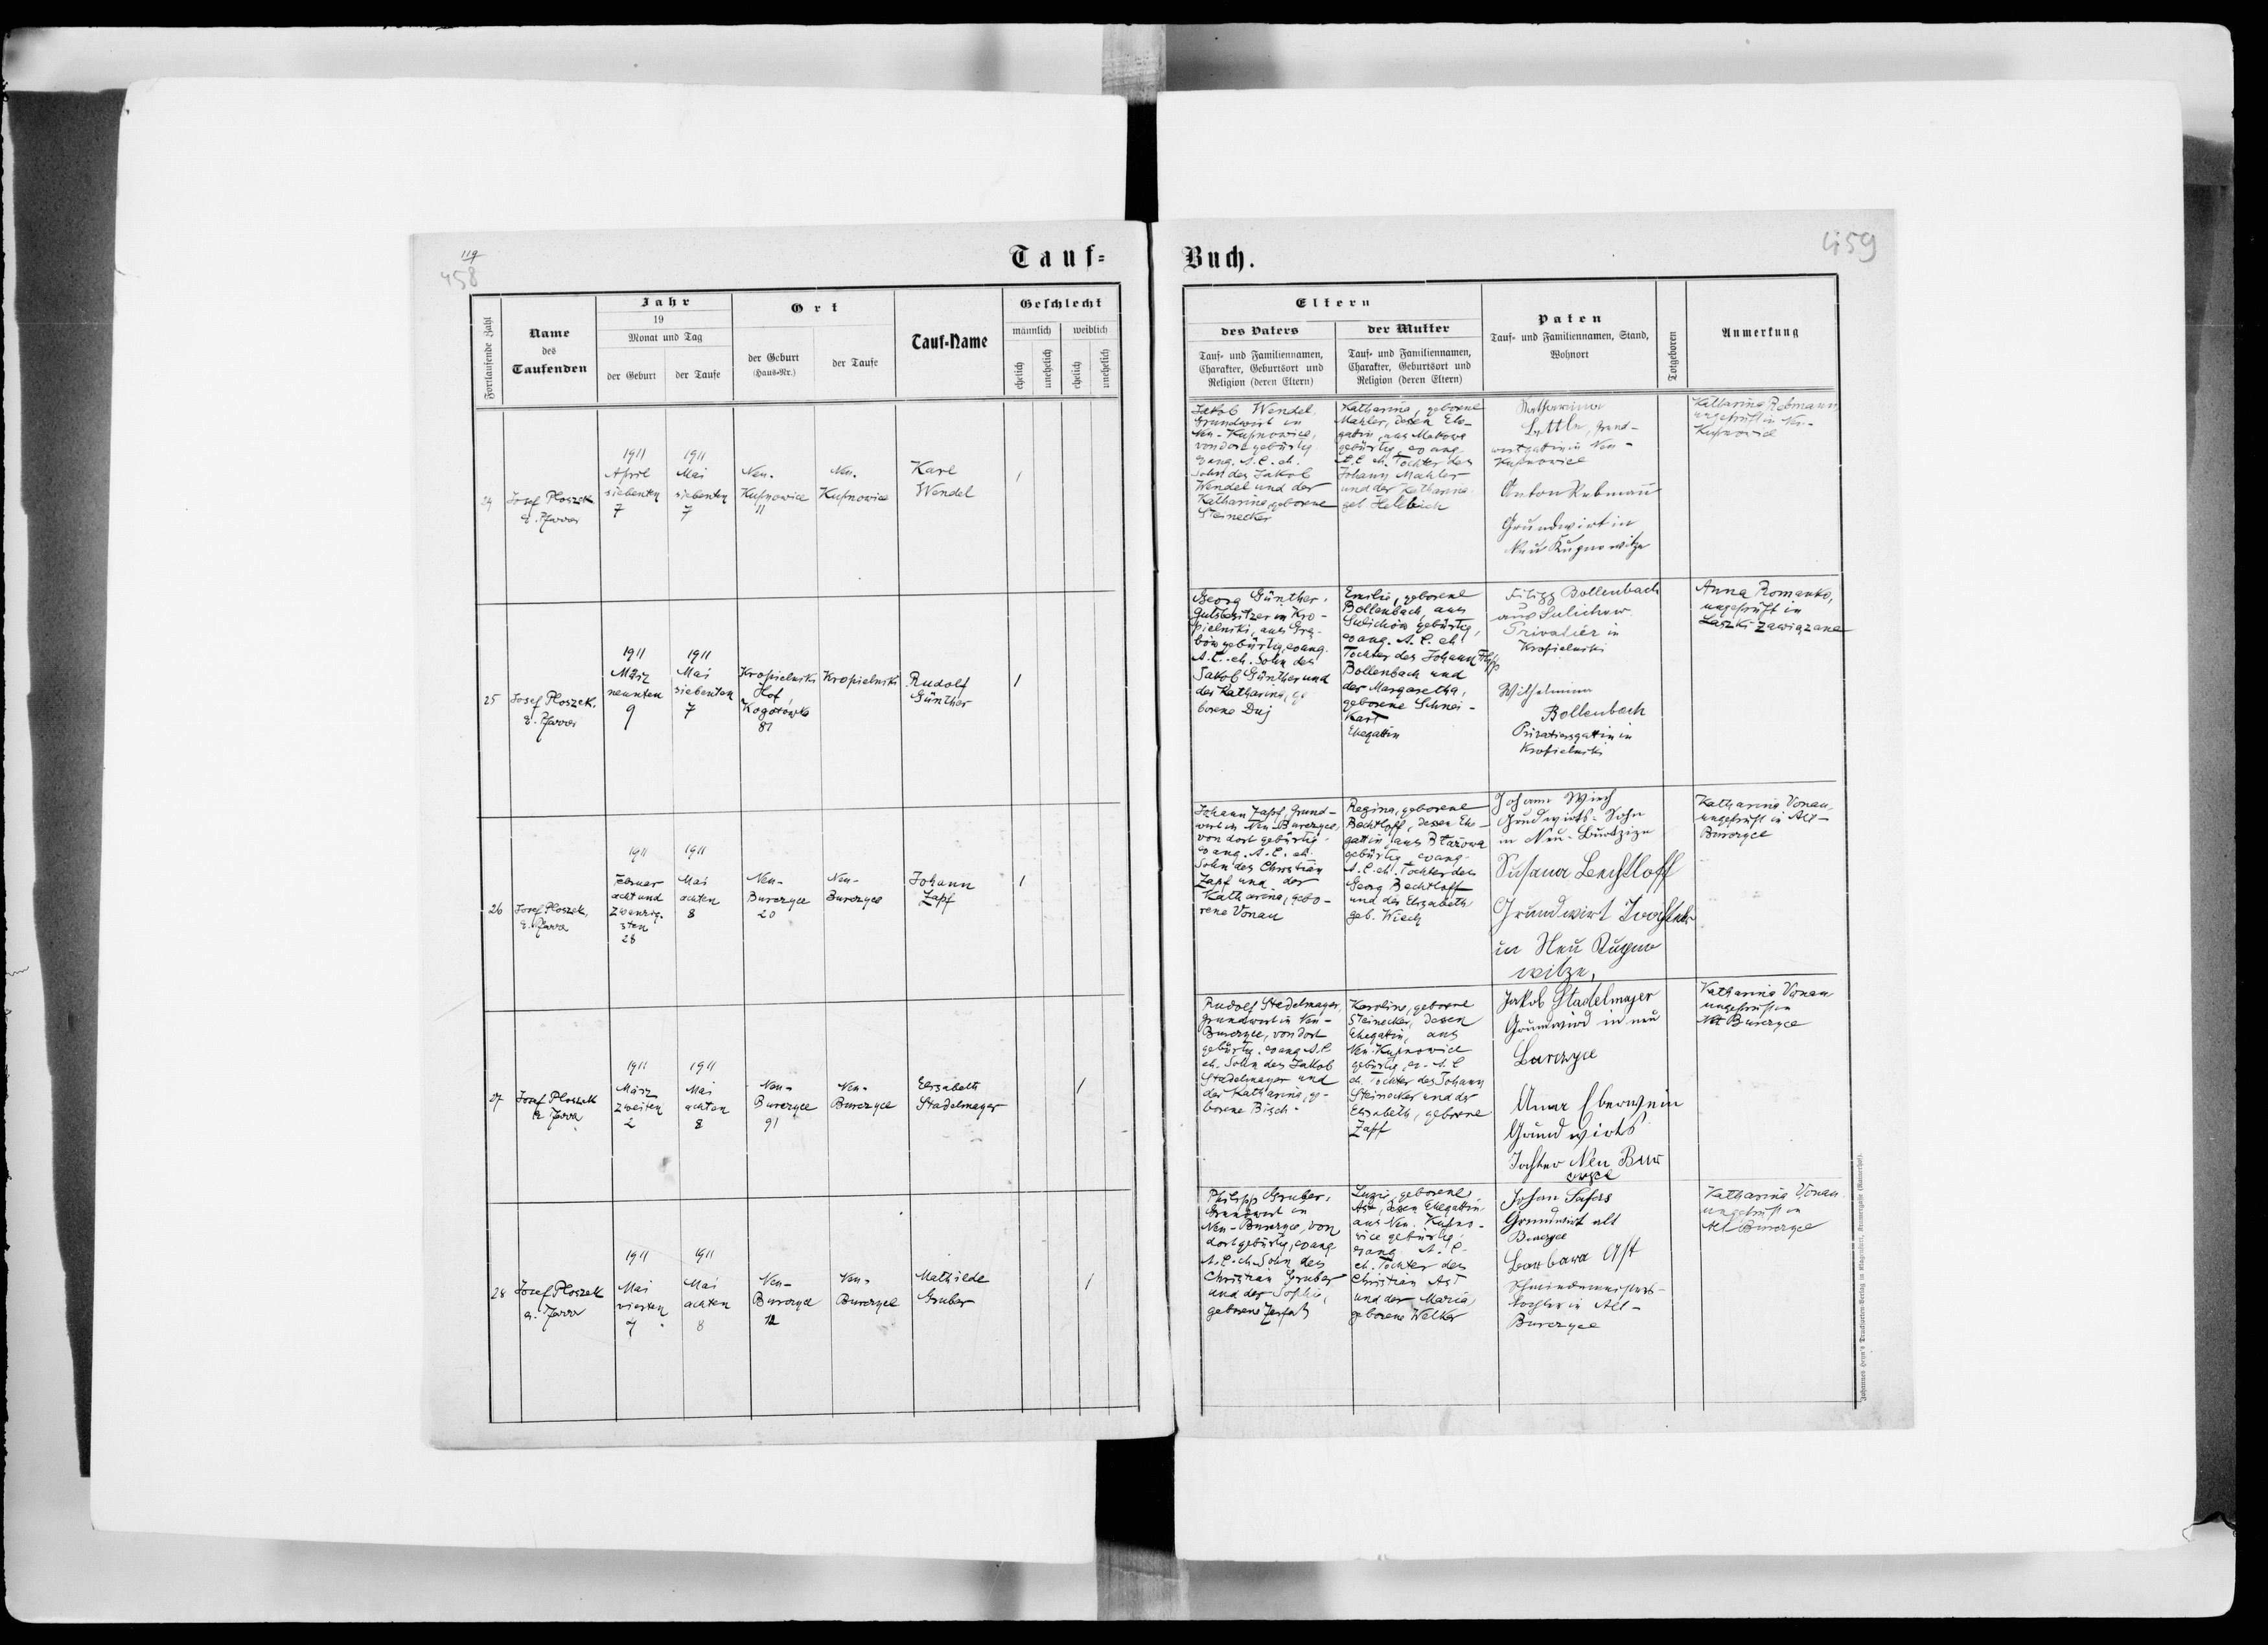 119
458
Tauf=
Buch.
459
Fortlaufende Zahl
Name
des
Taufenden
Jahr
19
Monat und Tag
der Geburt
der Taufe
Ort
der Geburt
(Haus-Nr.)
der Taufe
Tauf-Name
Geschlecht
männlich
weiblich
ehelich
unehelich
ehelich
unehelich
Eltern
des Vaters
Tauf- und Familiennamen,
Charakter, Geburtsort und
Religion (deren Eltern)
der Mutter
Tauf- und Familiennamen,
Charakter, Geburtsort und
Religion (deren Eltern)
Paten
Tauf- und Familiennamen, Stand,
Wohnort
Totgeboren
Anmerkung
24
Josef Ploszek
e. Pfarrer
1911
April
siebenten
7
1911
Mai
siebenten
7
Neu-
Kupnowice
11
Neu-
Kupnowice
Karl
Wendel
1
Jakob Wendel,
Grundwirt in
Neu-Kupnowice,
von dort gebürtig
evang. A.C. eh.
Sohn des Jakob
Wendel und der
Katharina, geborene
Steinecker
Katharina, geborene
Mahler, dessen Ehe-
gattin, aus Makowa
gebürtig, evang.
A.C. eh. Tochter des
Johann Mahler
und der Katharina
geb.
Katharina
Grund-
wirtsgattin in Neu-
Kupnowice
Anton Rebmann
Grundwirt in
Neu Kupnowitze
Katharina Rebmann,
ungeprüft in Neu-
Kupnowice
25
Josef Ploszek,
e. Pfarrer
1911
März
neunten
9
1911
Mai
siebenten
7
Kropielniki
Hof
81
Kropielniki
Rudolf
Günther
1
Georg Günther,
Gutsbesitzer in Kro-
pielniki, aus Gra-
bów gebürtig, evang.
A.C. eh. Sohn des
Jakob Günther und
der Katharina, ge
borene Duj
Emilie, geborene
Bollenbach, aus
Sulichów gebürtig,
evang. A.C. eh.
Tochter des Johann
Bollenbach und
der Margaretha,
geborene Schnei-
kart
Ehegattin
Filipp Bollenbach
aus Sulichow
Privatier in
Kropielniki
Wilhelmina
Bollenbach
Privatiersgattin in
Kropielniki
Anna Romanko,
ungeprüft in
Laszki zawiązane
26
Josef Ploszek,
e. Pfarrer
1911
Februar
acht und
zwanzig-
sten
28
1911
Mai
achten
8
Neu-
Burczyce
20
Neu-
Burczyce
Johann
Zapf
1
Johann Zapf, Grund-
wirt in Neu-Burczyce,
von dort gebürtig
evang. A.C. eh.
Sohn des Christian
Zapf und der
Katharina, gebo-
rene Vonau
Regina, geborene
Bechtloff, dessen Ehe-
gattin aus Błażowa
gebürtig, evang.
A.C. eh. Tochter des
Georg Bechtloff
und der Elisabeth
geb. Wiech
Johann Wiech
Grundwirts-Sohn
in Neu-Burtzize
Susana Bechtloff
Grundwirt Tochter
in Neu Kupno
witze,
Katharina Vonau,
ungeprüft in Alt-
Burczyce
27
Josef Ploszek
e. Pfarrer
1911
März
zweiten
2
1911
Mai
achten
8
Neu-
Burczyce
91
Neu-
Burczyce
Elisabeth
Stadelmayer
1
Rudolf Stadelmayer,
Grundwirt in Neu-
Burczyce, von dort
gebürtig, evang. A.C.
eh. Sohn des Jakob
Stadelmayer und
der Katharina, ge-
borene Bisch-
Karoline, geborene
Steinecker, dessen
Ehegattin, aus
Neu-Kupnowice
gebürtig, ev. A.C.
eh. Tochter des Johann
Steinecker und der
Elisabeth, geborene
Zapf
Jakob Stadelmajer
Grundwird in neu
Burczyce
Anna Eberwein
Grundwirts
Tochter Neu Bur
czyce
Katharina Vonau
ungeprüft in
Alt Burczyce
28
Josef Ploszek
e. Pfarrer
1911
Mai
vierten
4
1911
Mai
achten
8
Neu-
Burczyce
12
Neu-
Burczyce
Mathilde
Gruber
1
Philipp Gruber,
Grundwirt in
Neu-Burczyce, von
dort gebürtig, evang.
A.C. eh. Sohn des
Christian Gruber
und der Sophie,
geborene
Luzie, geborene
Ast, dessen Ehegattin
aus Neu-Kupno-
wice gebürtig,
evang. A.C.
eh. Tochter des
Christian Ast
und der Maria,
geborene Welker
Johan
Grundwirt alt
Burczyce
Barbara Ast
tochter in Alt-
Burczyce
Katharina Vonau
ungeprüft in
Alt Burczyce